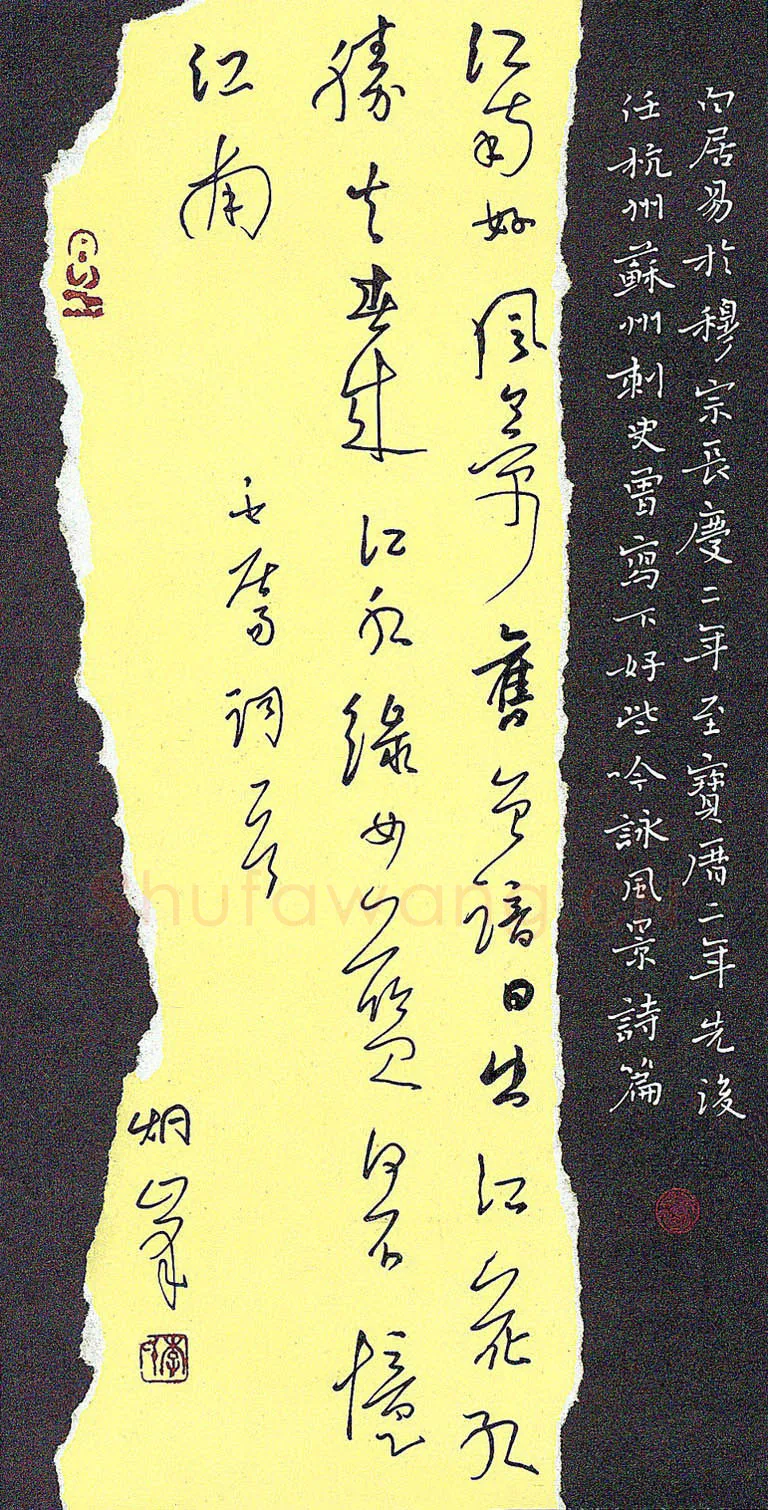 白居易於穆宗長慶二年至寶曆二年先後
任杭州蘇州刺史曾寫下好些吟詠風景詩篇
江南好風景舊曾諳日出江花紅
勝火春來江水綠如藍能不憶
江南
白居易詞一首
峯
shufawang.cn